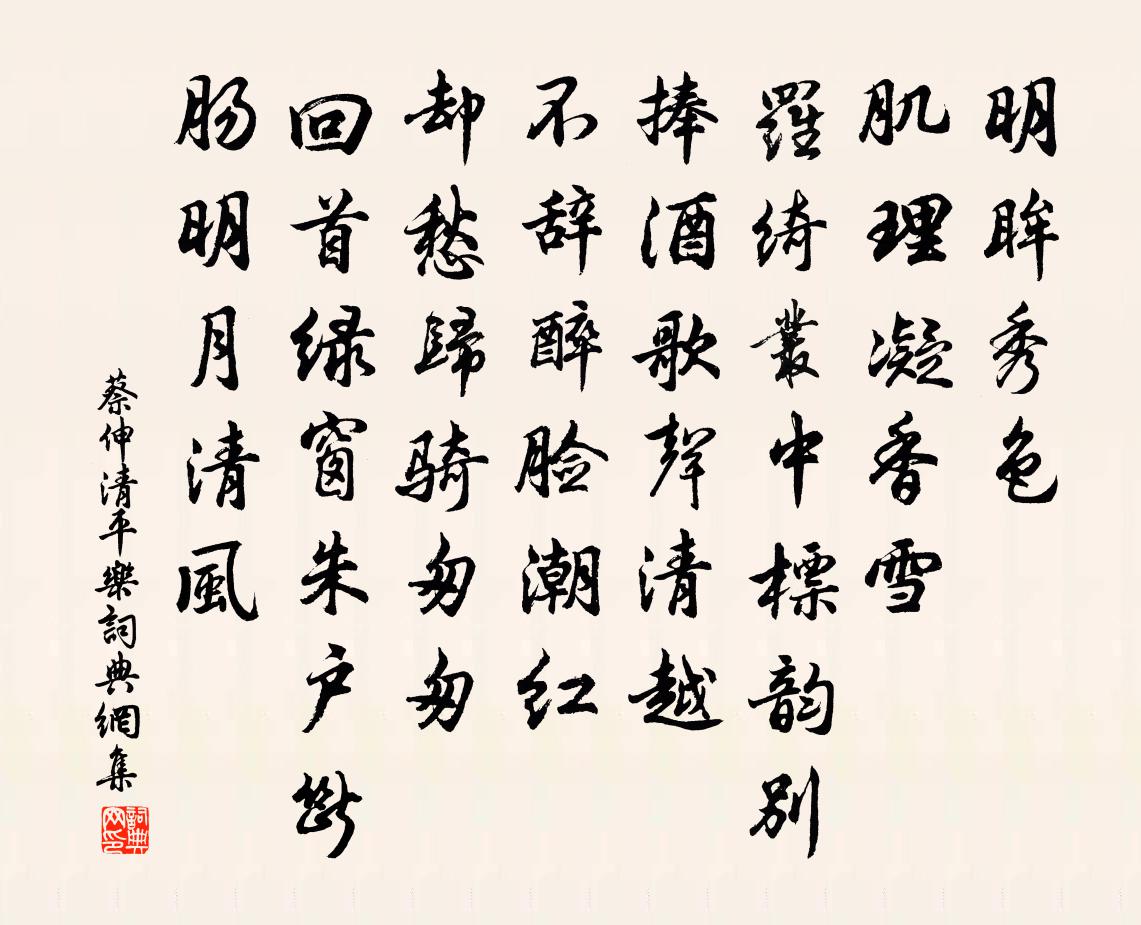 明眸秀色
肌理凝香雪
羅綺叢中標韵别
捧酒歌聲清越
不辞醉脸潮红
却愁歸骑匆匆
回首绿窗朱户斷
肠明月清風
蔡伸清平樂詞典網集
詞典网印